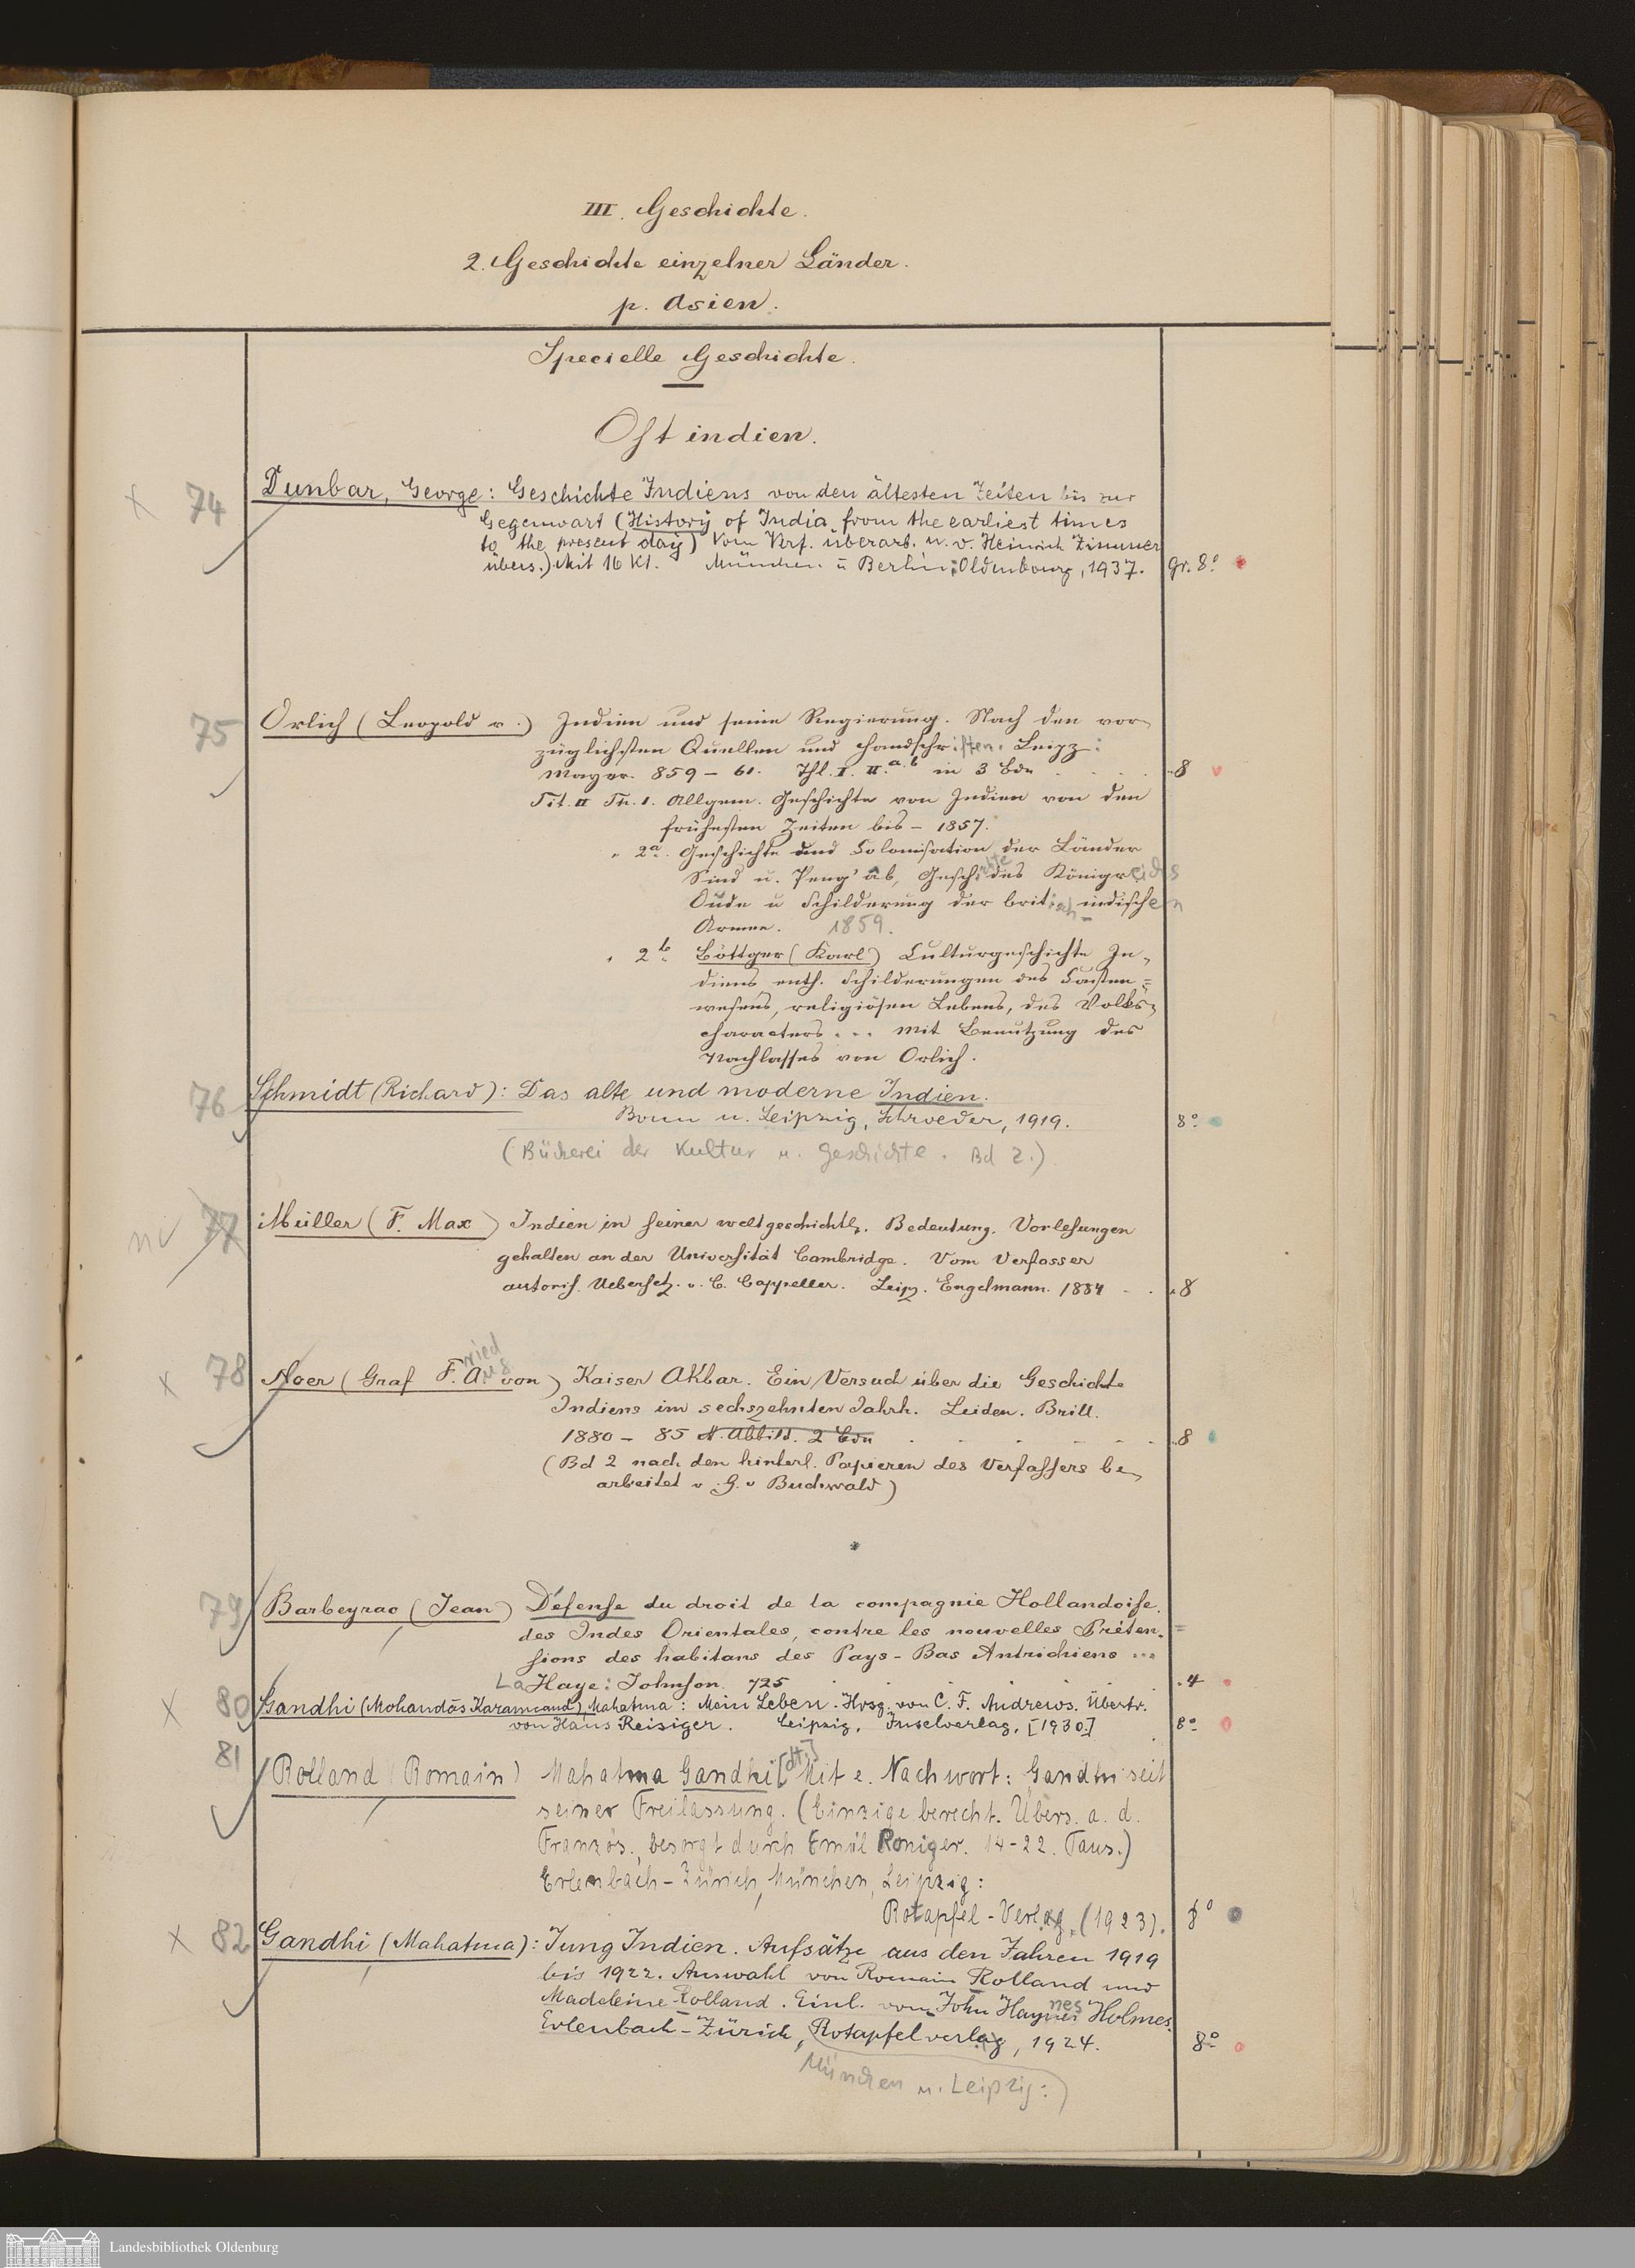 III. Geschichte.
2. Geschichte einzelner Länder.
p. Asien.
Specielle Geschichte.
Ostindien.
x 74 Dunbar, George: Geschichte Indiens von den ältesten Zeiten bis zur
Gegenwart (History of India from the earliest times
to the present day) Vom Verf. überarb. u. v. Heinrich Zimmer
übers.) Mit 16 Kt. München u. Berlin: Oldenbourg, 1937. gr. 8°
75 Orlich (Leopold v.) Indien und seine Regierung. Nach den vor-
züglichsten Quellen und Handschriften. Leipz:
Mayer. 859 – 61. Thl. I. II. a. b in 3 Bdn . . . . 8
Tit. II Th. 1. Allgem. Geschichte von Indien von den
frühesten Zeiten bis – 1857.
" 2a. Geschichte und Colonisation der Länder
Sind u. Peng'âb, Geschichte des Königreichs
Oude u Schilderung der britisch-indischen
Armee. 1859.
" 2b. Böttger (Karl) Culturgeschichte In-
diens enth. Schilderungen des Casten=
wesens, religiösen Lebens, des Volks-
characters ... mit Benutzung des
Nachlasses von Orlich.
76 Schmidt (Richard): Das alte und moderne Indien.
Bonn u. Leipzig, Schroeder, 1919. 8°
(Bücherei der Kultur u. Geschichte. Bd 2.)
nv 77 Müller (F. Max) Indien in seiner weltgeschichtl. Bedeutung. Vorlesungen
gehalten an der Universität Cambridge. Vom Verfasser
autoris. Uebersetz. v. C. Cappeller. Leipz. Engelmann. 1884 . . 8
ried
x 78 Noer (Graf F. Aug von) Kaiser Akbar. Ein Versuch über die Geschichte
Indiens im sechszehnten Jahrh. Leiden. Brill.
1880 – 85 N. Abbild. 2 Bdn . . . . . . 8
(Bd 2 nach den hinterl. Papieren des Verfassers be-
arbeitet v. G. v Buchwald)
79 Barbeyrac (Jean) Défense du droit de la compagnie Hollandoise
des Indes Orientales, contre les nouvelles Préten-=
sions des habitans des Pays-Bas Autrichiens ...
La Haye: Johnson 725 . . . . 4
x 80 Gandhi (Mohandās Karamcand), Mahatma: Mein Leben. Hrsg. von C. F. Andrews. Übertr.
von Hans Reisiger. Leipzig, Inselverlag, [1930.] 8°
81 Rolland (Romain) Mahatma Gandhi [dt.] Mit e. Nachwort: Gandhi seit
seiner Freilassung. (Einzige berecht. Übers. a. d.
Französ., besorgt durch Emil Roniger. 14-22. Taus.)
Erlenbach-Zürich, München, Leipzig:
Rotapfel-Verlag. (1923). 8°
x 82 Gandhi (Mahatma): Jung Indien. Aufsätze aus den Jahren 1919
bis 1922. Auswahl von Romain Rolland und
Madeleine Rolland. Einl. von John Haynes Holmes.
Erlenbach-Zürich, Rotapfelverlag, 1924. 8°
München u. Leipzig:)
Landesbibliothek Oldenburg